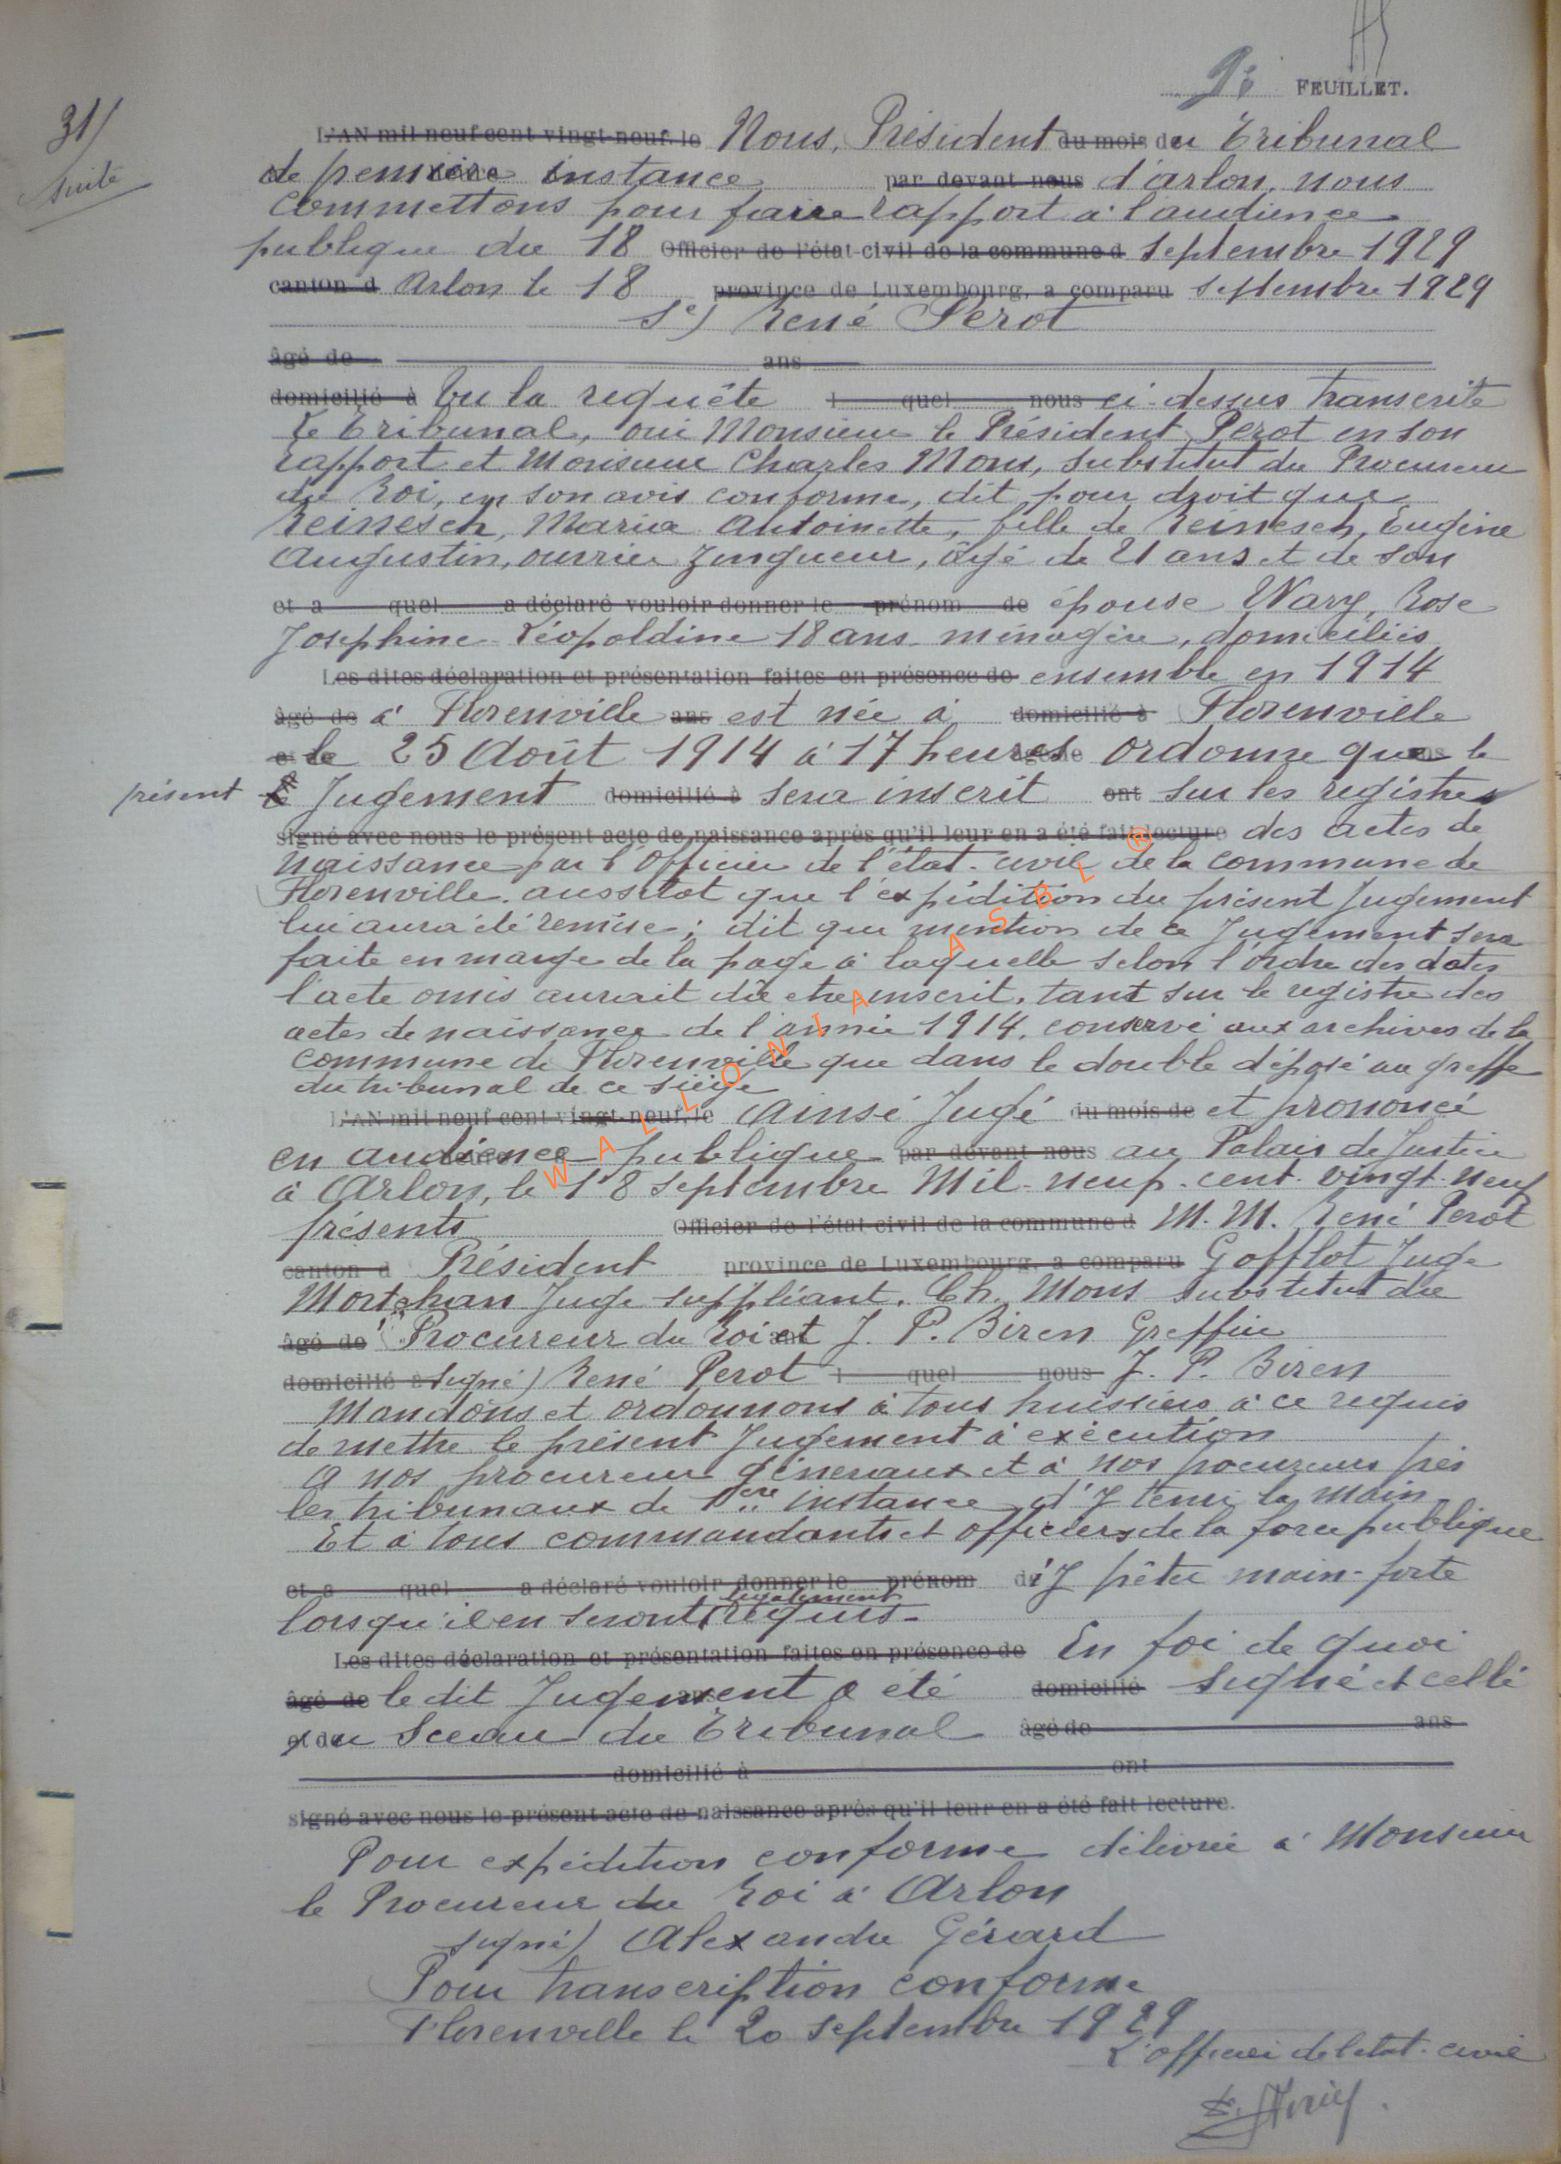 9e FEUILLET.
31/
suite
L'AN mil neuf cent vingt-neuf, le Nous, Président du mois de du Tribunal
de premiere instance par devant nous d'arlon, nous
commettons pour faire rapport à l'audience
publique du 18 Officier de l'état civil de la commune d septembre 1929
canton d Arlon le 18 province de Luxembourg, a comparu septembre 1929
Sé) René Perot
âgé de ans
domicilié à Vu la requête l quel nous ci-dessus transcrite
Le Tribunal, oui Monsieur le Président Perot en son
rapport et Monsieur Charles Mons, substitut du Procureur
du Roi, en son avis conforme, dit pour droit que
Reinesch, Maria Antoinette, fille de Reinesch, Eugène
Augustin, ouvrier zingueur, âgé de 21 ans et de son
et a quel a déclaré vouloir donner le prénom de épouse Wary, Rose
Josephine Léopoldine 18 ans ménagère, domiciliés
Les dites déclaration et présentation faites en présence de ensemble en 1914
âgé de à Florenville ans est née à domicilié à Florenville
et de le 25 Août 1914 à 17 heures âgé de ordonne que ans le
présent Jugement domicilié à sera inscrit ont sur les registres
signé avec nous le présent acte de naissance après qu'il leur en a été fait lecture des actes de
naissance par l'Officier de l'état-civil de la commune de
Florenville aussitot que l'expédition du présent Jugement
lui aura été remise; dit que mention de ce Jugement sera
faite en marge de la page à laquelle selon l'ordre des dates
l'acte omis aurait dû etre inscrit, tant sur le registre des
actes de naissance de l'année 1914, conservé aux archives de la
commune de Florenville que dans le double déposé au greffe
du tribunal de ce siège
L'AN mil neuf cent vingt-neuf, le Ainsi Jugé du mois de et prononcé
en audience publique par devant nous au Palais de Justice
à Arlon, le 18 septembre Mil-neuf-cent-vingt-neuf
présents Officier de l'état civil de la commune d M. M. René Perot
canton d Président province de Luxembourg, a comparu Gofflot Juge
Mortehan Juge suppléant, Ch. Mons substitut du
âgé de Procureur du Roi et J. P. Biren Greffier
domicilié à signé) René Perot l quel nous J. P. Biren
Mandons et ordonnons à tous huissiers à ce requis
de mettre le présent Jugement à exécution
A nos procureurs généraux et à nos procureurs près
les tribunaux de 1ère instance d'y tenir la main
Et à tous commandants et officiers de la force publique
et a quel a déclaré vouloir donner le prénom d'y prêter main-forte
lorsqu'il en seront légalement requis-
Les dites déclaration et présentation faites en présence de En foi de quoi
âgé de le dit Jugement a été domicilié signé et cellé
et de du Sceau du Tribunal âgé de ans
domicilié à ont
signé avec nous le présent acte de naissance après qu'il leur en a été fait lecture.
Pour expédition conforme délivrée à Monsieur
le Procureur du Roi à Arlon
signé) Alexandre Gérard
Pour transcription conforme
Florenville le 20 septembre 1929
L'officier de l'etat-civil
WALLONIA ASBL ®